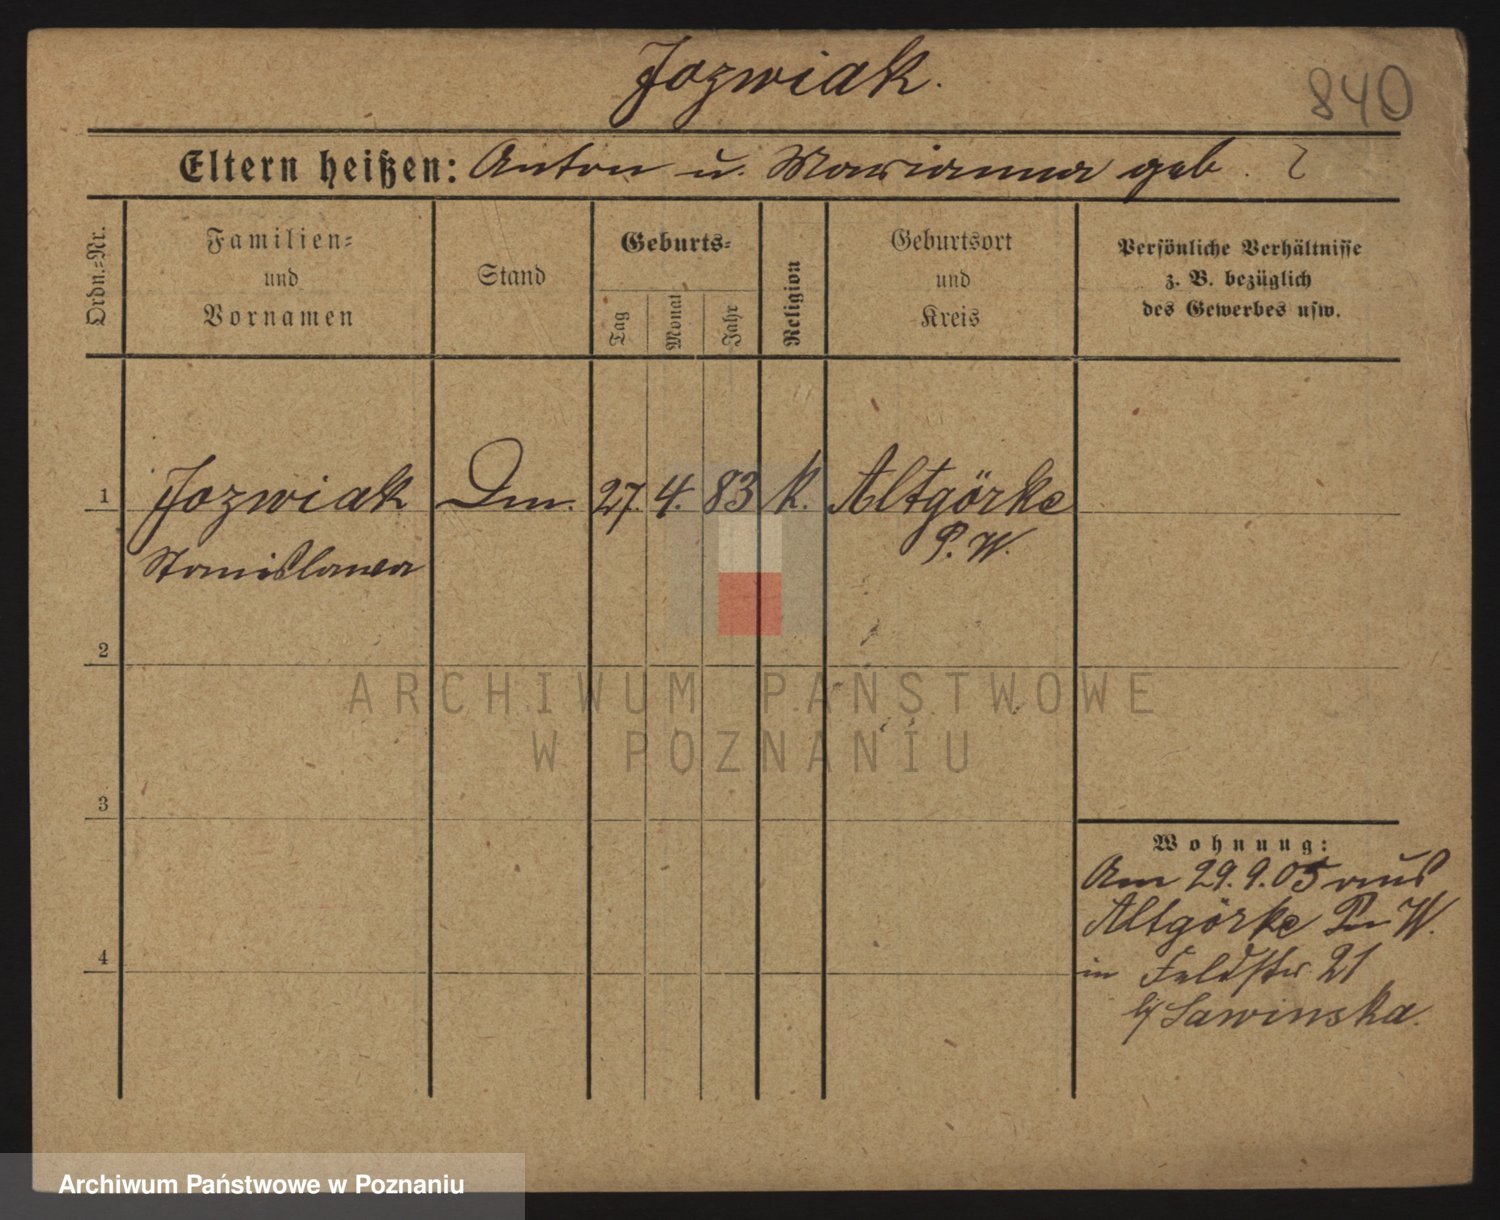 Jozwiak.
840
Eltern heißen: Anton u. Marianna geb. ?
Ordn.=Nr.
Familien=
und
Vornamen
Stand
Geburts=
Tag
Monat
Jahr
Religion
Geburtsort
und
Kreis
Persönliche Verhältnisse
z. B. bezüglich
des Gewerbes usw.
1 Jozwiak Dm. 27. 4. 83 k. Altgörke
Stanislawa P. W.
2
ARCHIWUM PAŃSTWOWE
W POZNANIU
3
Wohnung:
Am 29.9.05 aus
Altgörke Pn W.
4
in Feldstr. 21
b/ Sawinska.
Archiwum Państwowe w Poznaniu